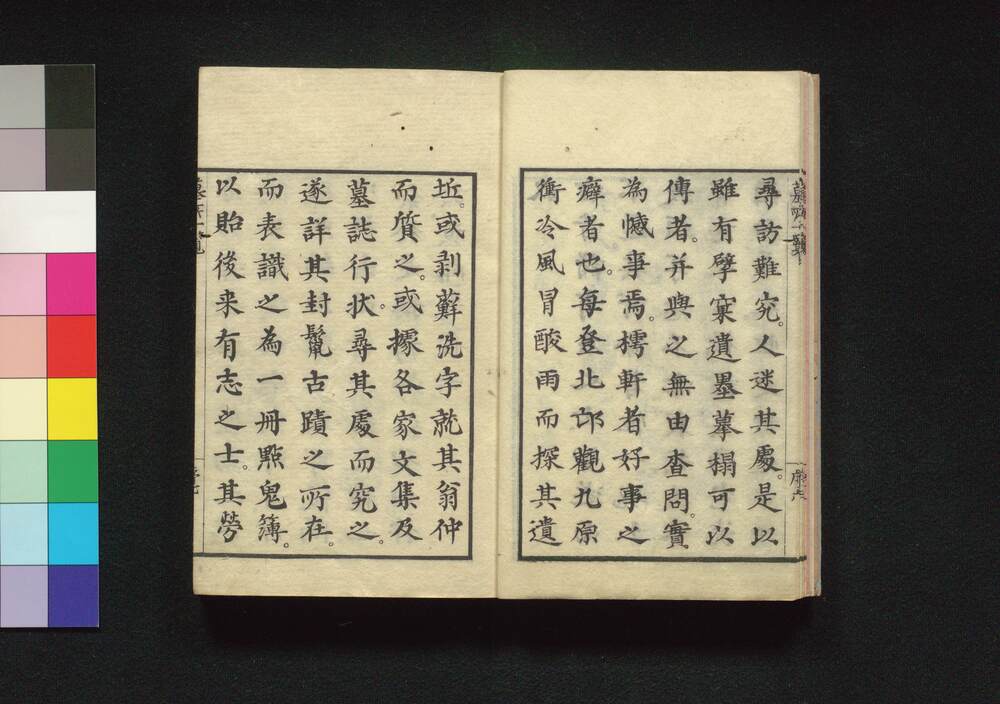 尋訪難究。人迷其處。是以
雖有擘窠遺墨摹搨可以
傳者。并與之無由查問。實
為憾事焉。樗軒者好事之
癖者也。每登北邙觀九原
衝冷風冒酸雨而探其遺
坵。或剥蘚洗字就其翁仲
而質之。或據各家文集及
墓誌行状。尋其處而究之。
遂詳其封鬣古蹟之所在。
而表識之為一冊點鬼簿。
以貽後来有志之士。其勞